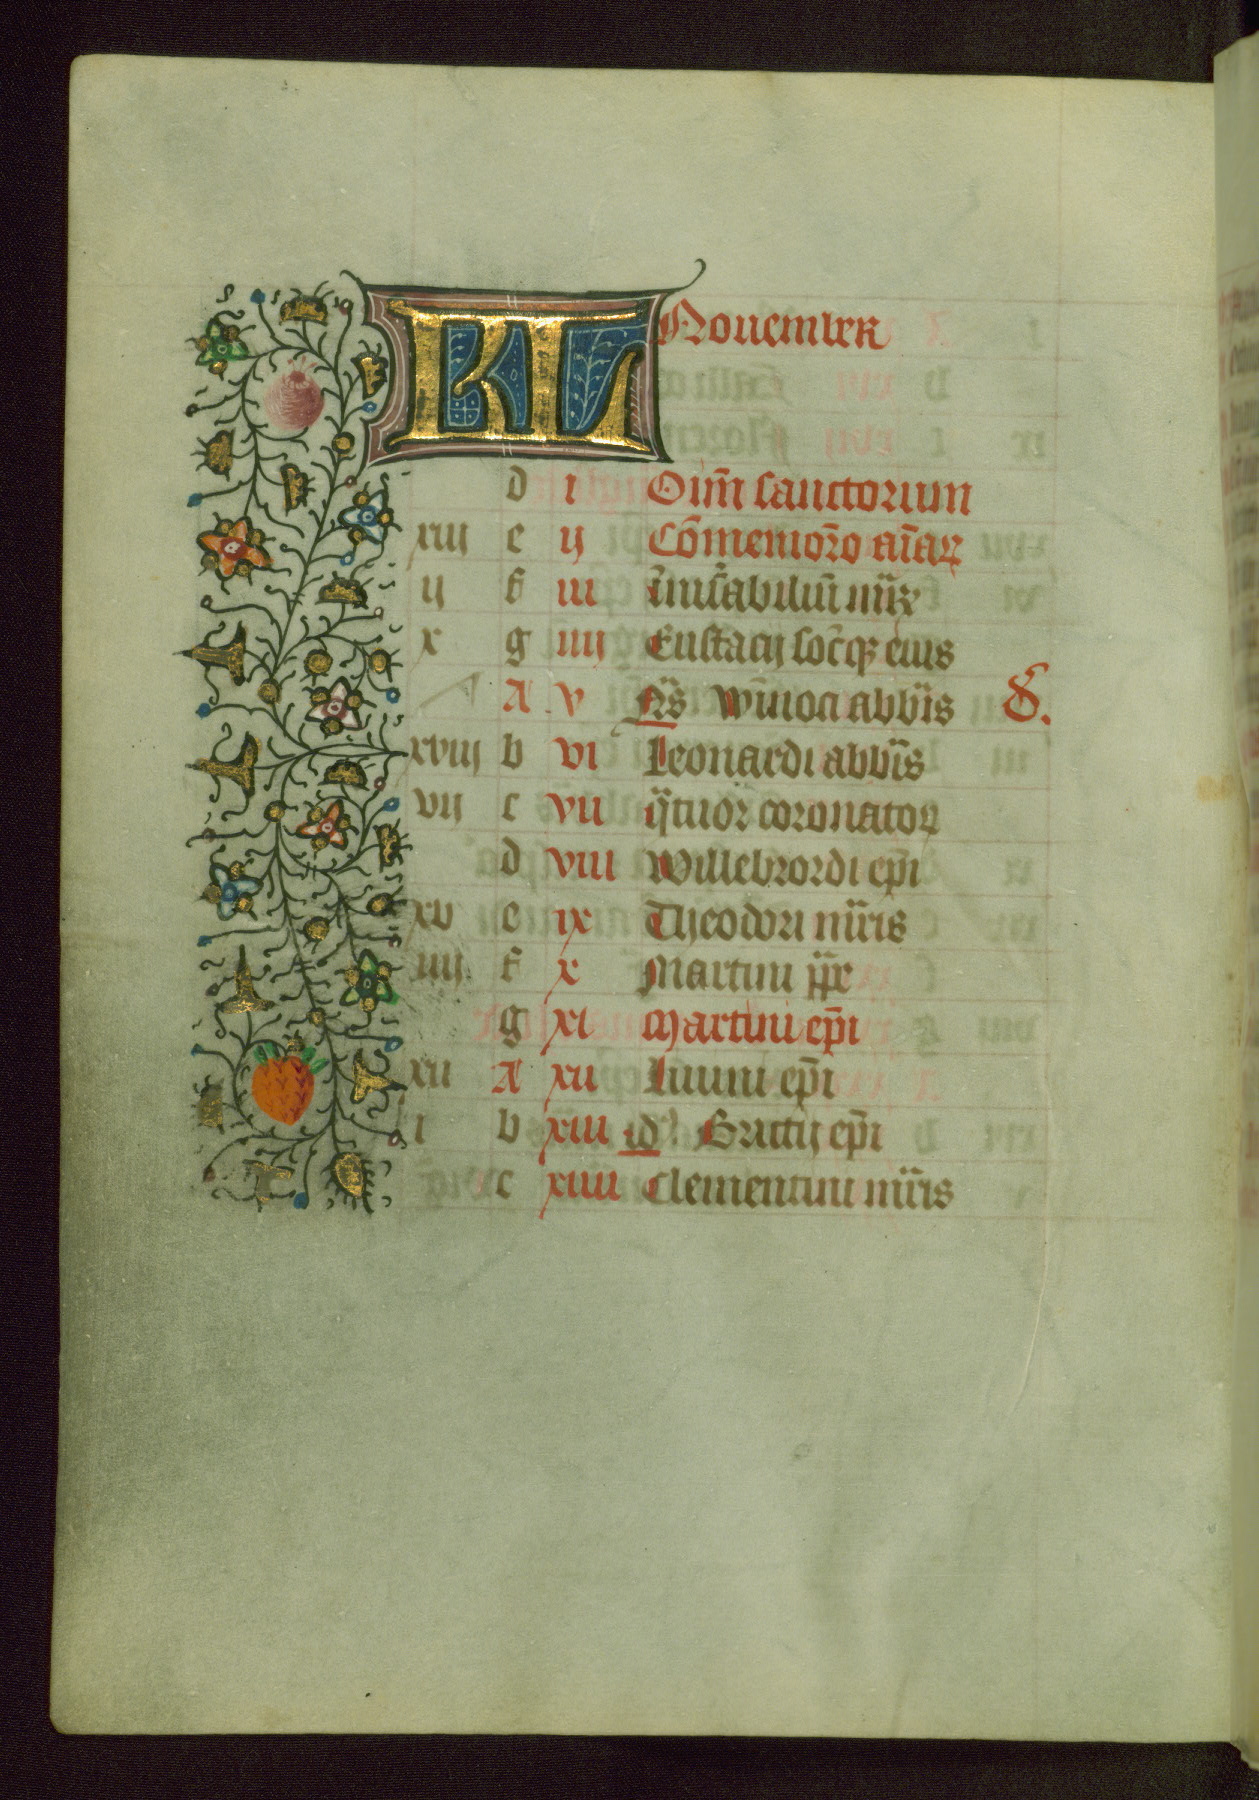 KL Nouember
d i Oim̄ sanctorum
xiii e ii Cōmemorō aīaꝝ
ii f iii īnūabiliū mr̄
x g iiii Eustacij soc̄qꝫ eius
A v Nō winoci abb̄is S.
xviii b vi Leonardi abb̄is
vii c vii q̄tuor coronatoꝝ
d viii Willebrordi ep̄i
xv e ix Theodori mr̄is
iiii f x Martini pp̄e
g xi Martini ep̄i
xii A xii Liuini ep̄i
i b xiii id᷒ Brictij ep̄i
c xiiii Clementini mr̄is